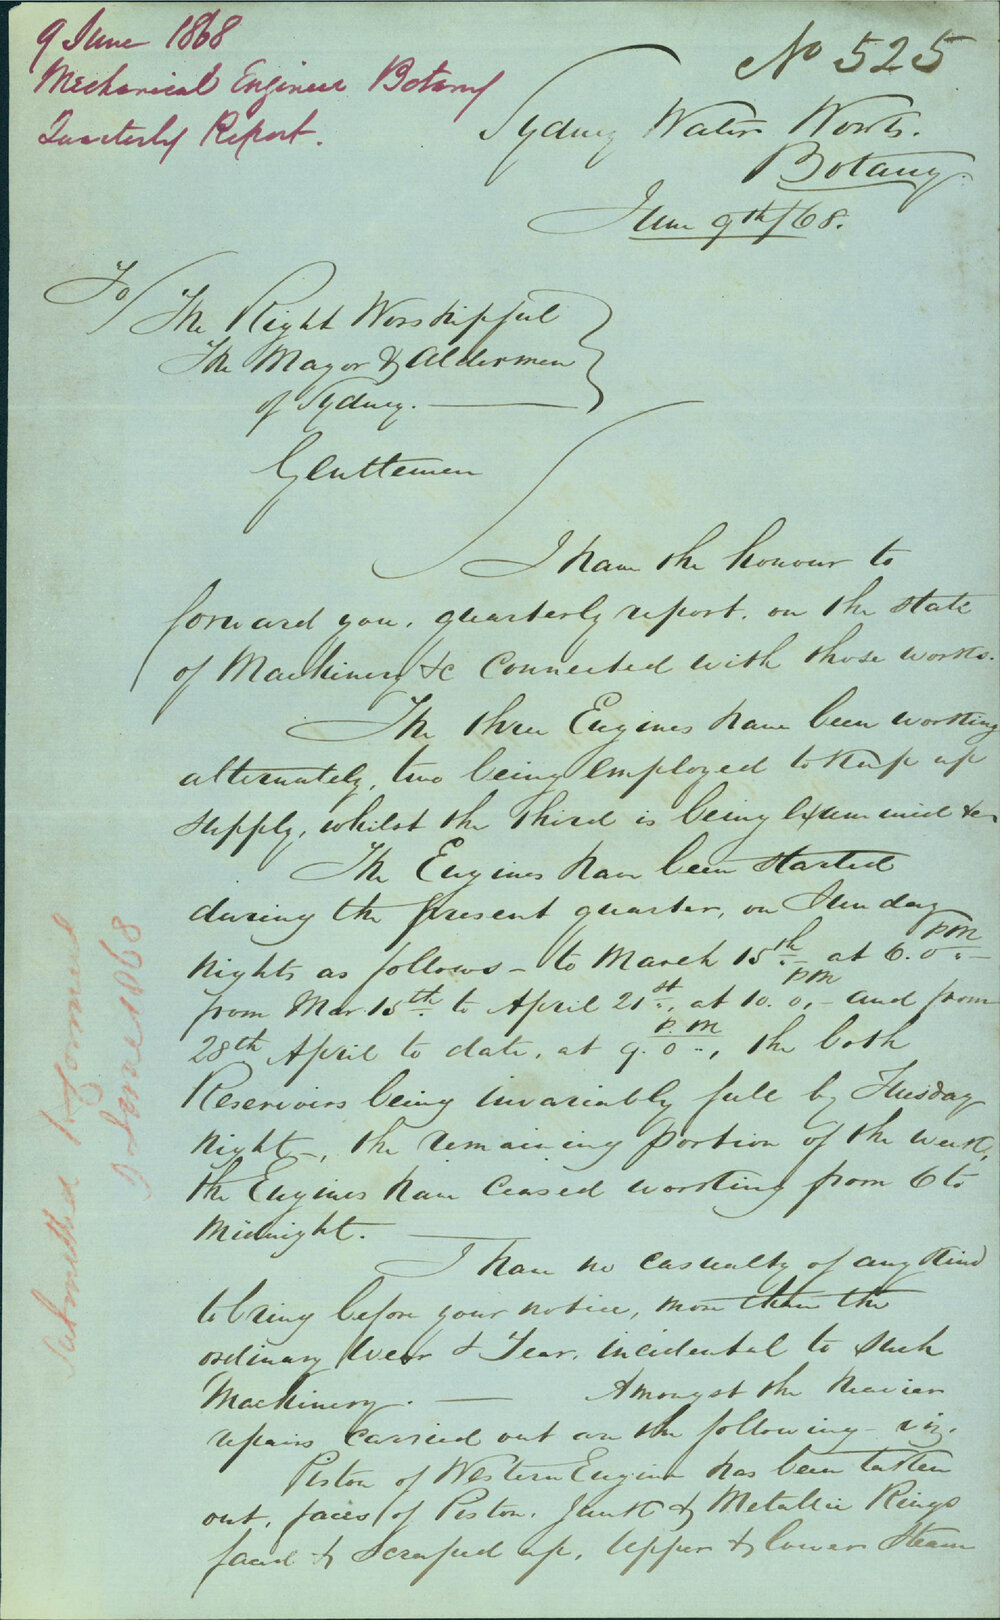 9 June 1868
Mechanical Engineer Botany
Quarterly Report.
No 525
Sydney Water Works.
Botany.
June 9th/68.
To
The Right Worshipful
The Mayor & Aldermen
of Sydney.
Gentlemen
I have the honour to
forward you, quarterly report, on the state
of Machinery &c connected with those works.
The three Engines have been working
alternately, two being employed to keep up
supply, whilst the third is being examined &c
The Engines have been started
during the present quarter, on Sunday
nights as follows - to March 15th at 6.0 PM -
from Mar. 15th to April 21st, at 10.0 PM - and from
28th April to date, at 9.0 P.M, the both
Reservoirs being invariably full by Tuesday
night -, the remaining portion of the week,
the Engines have ceased working from 6 to
midnight.
I have no casualty of any kind
to bring before your notice, more than the
ordinary Wear & Tear, incidental to such
Machinery. Amongst the heavier
repairs carried out are the following - viz.
Piston of Western Engine has been taken
out, faces of Piston, Junk & Metallic Rings
faced & scraped up, Upper & lower Steam
Submitted
June 1868